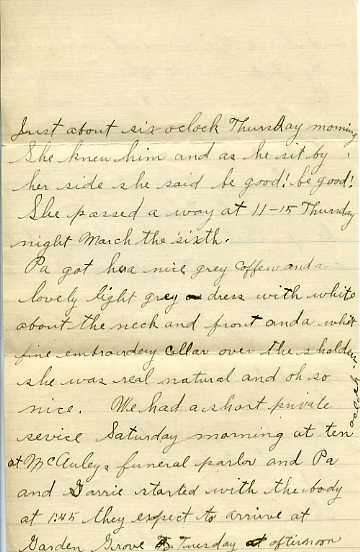 Just about six oclock Thursday morning
She knew him and as he sit by
her side she said be good! be good!
She passed a way at 11-15 Thursday
night March the sixth.
Pa got her a nice grey coffew and a
lovely light grey dress with white
about the neck and front and a whit
fine embraudery collar over the sholder
she was real natural and oh so
nice. We had a short private
sevice Saturday morning at ten
at McAuleys funeral parlor and Pa
and Garrie started with the body
at 1:45 they expect to arrive at
Garden Grove Tuesday afternoon